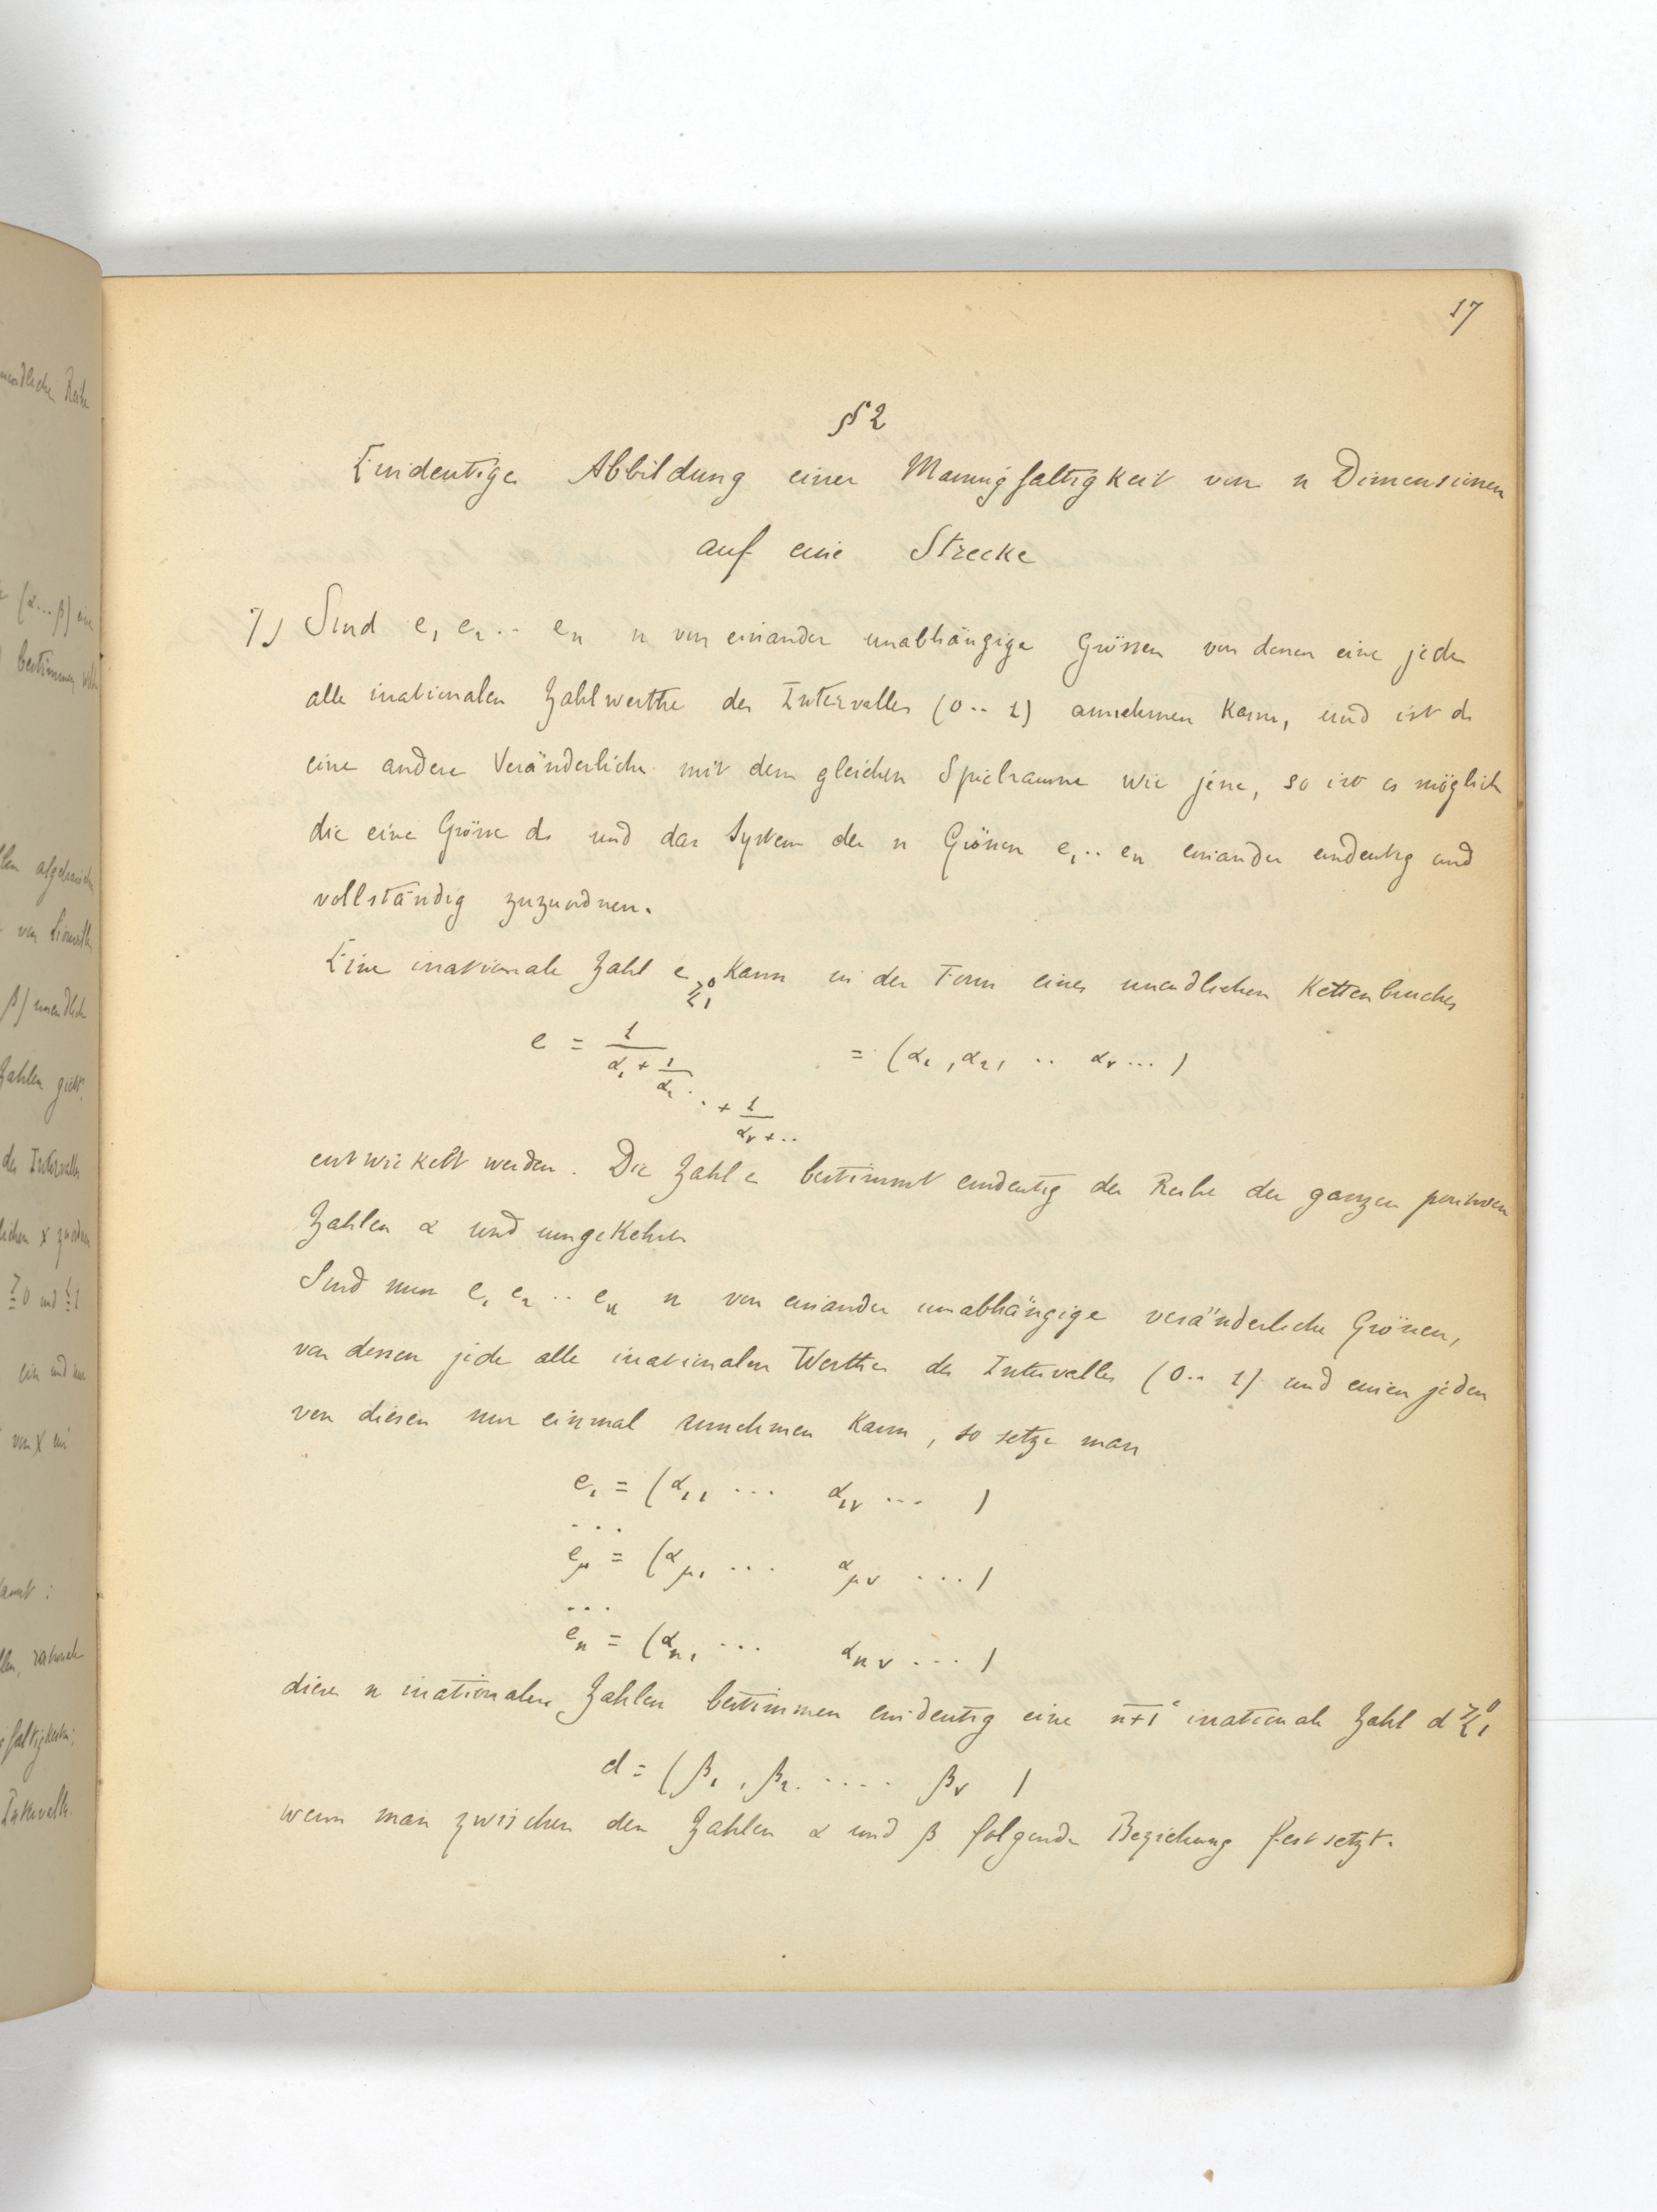 17
§ 2
Eindeutige Abbildung einer Mannigfaltigkeit von n Dimensionen
auf eine Strecke
7) Sind e₁ e₂ .. eₙ n von einander unabhängige Grössen von denen eine jede
alle irrationalen Zahlwerthe des Intervalles (0 .. 1) annehmen kann, und ist d
eine andere Veränderliche mit dem gleichen Spielraume wie jene, so ist es möglich
die eine Grösse d und das System der n Grössen e₁ .. eₙ einander eindeutig und
vollständig zuzuordnen.
Eine irrationale Zahl e ≷ 0 1 kann in der Form eines unendlichen Kettenbruches
e = 1/(α₁ + 1/(α₂ . . + 1/(αᵥ + .. = (α₁, α₂, .. αᵥ ... )
entwickelt werden. Die Zahl e bestimmt eindeutig die Reihe der ganzen positiven
Zahlen α und umgekehrt
Sind nun e₁ e₂ .. eₙ n von einander unabhängige veränderliche Grössen,
von denen jede alle irrationalen Werthe des Intervalles (0 .. 1) und einen jeden
von diesen nur einmal annehmen kann, so setze man
e₁ = (α₁₁ ... α₁ᵥ ... )
...
e_μ = (α_μ₁ ... α_μν ... )
...
eₙ = (αₙ₁ ... αₙᵥ ... )
diese n irrationalen Zahlen bestimmen eindeutig eine n+1ᵗᵉ irrationale Zahl d ≷ 0 1
d = (β₁, β₂ ..... βᵥ )
wenn man zwischen den Zahlen α und β folgende Beziehung festsetzt.